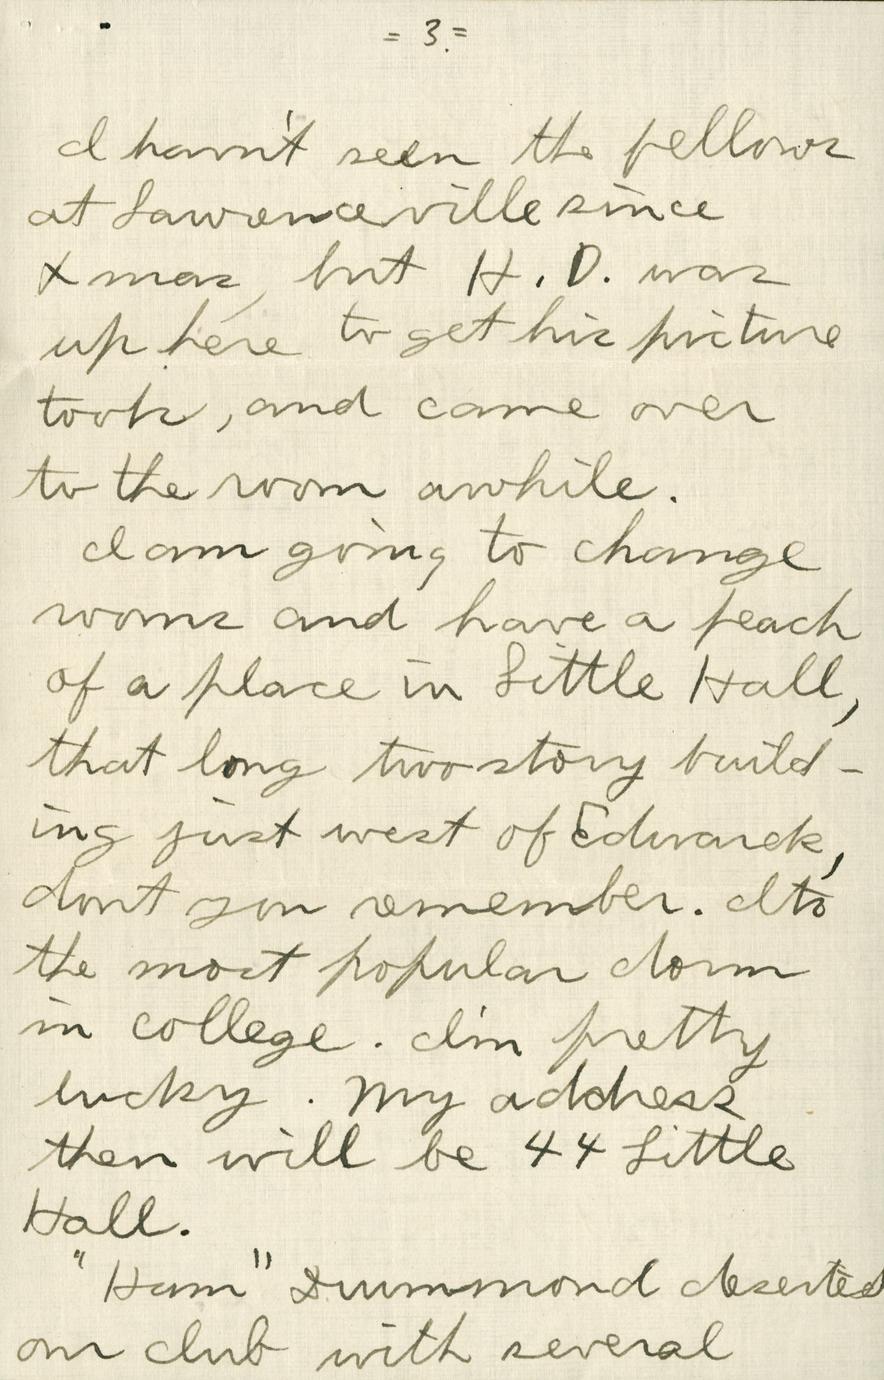 = 3. =
I havn't seen the fellows
at Lawrenceville since
Xmas, but H. D. was
up here to get his picture
took, and came over
to the room awhile.
I am going to change
rooms and have a peach
of a place in Little Hall,
that long two story build-
ing just west of Edwards,
dont you remember. Its
the most popular dorm
in college. I'm pretty
lucky. My address
then will be 44 Little
Hall.
"Ham" Drummond deserted
our club with several